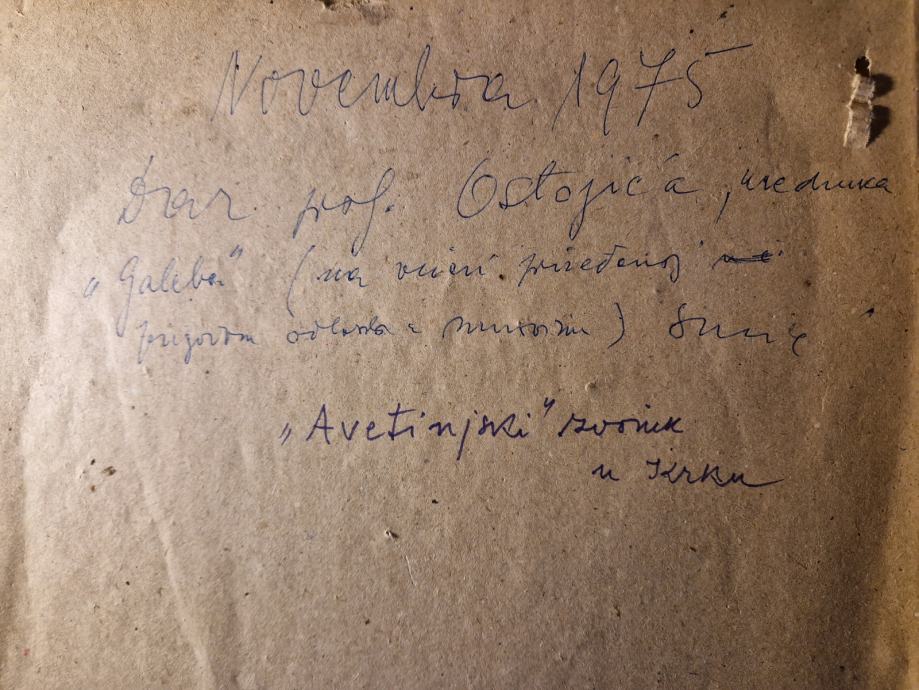 Novembra 1975
Dar prof. Ostojića, urednika
„Galeba" (na večeri priređenoj
prigodom odlaska u mirovinu)
„Avetinjski" zvonik
u Krku